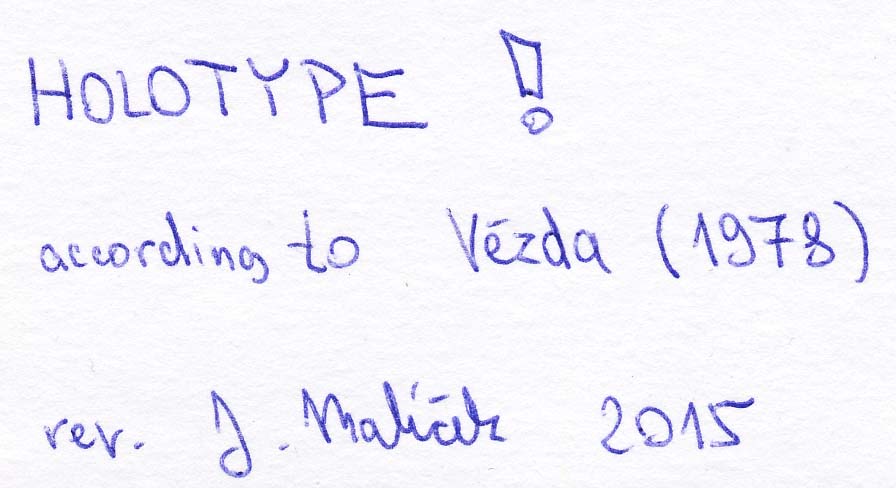 HOLOTYPE !
according to Vězda (1978)
rev. J. Malíček 2015